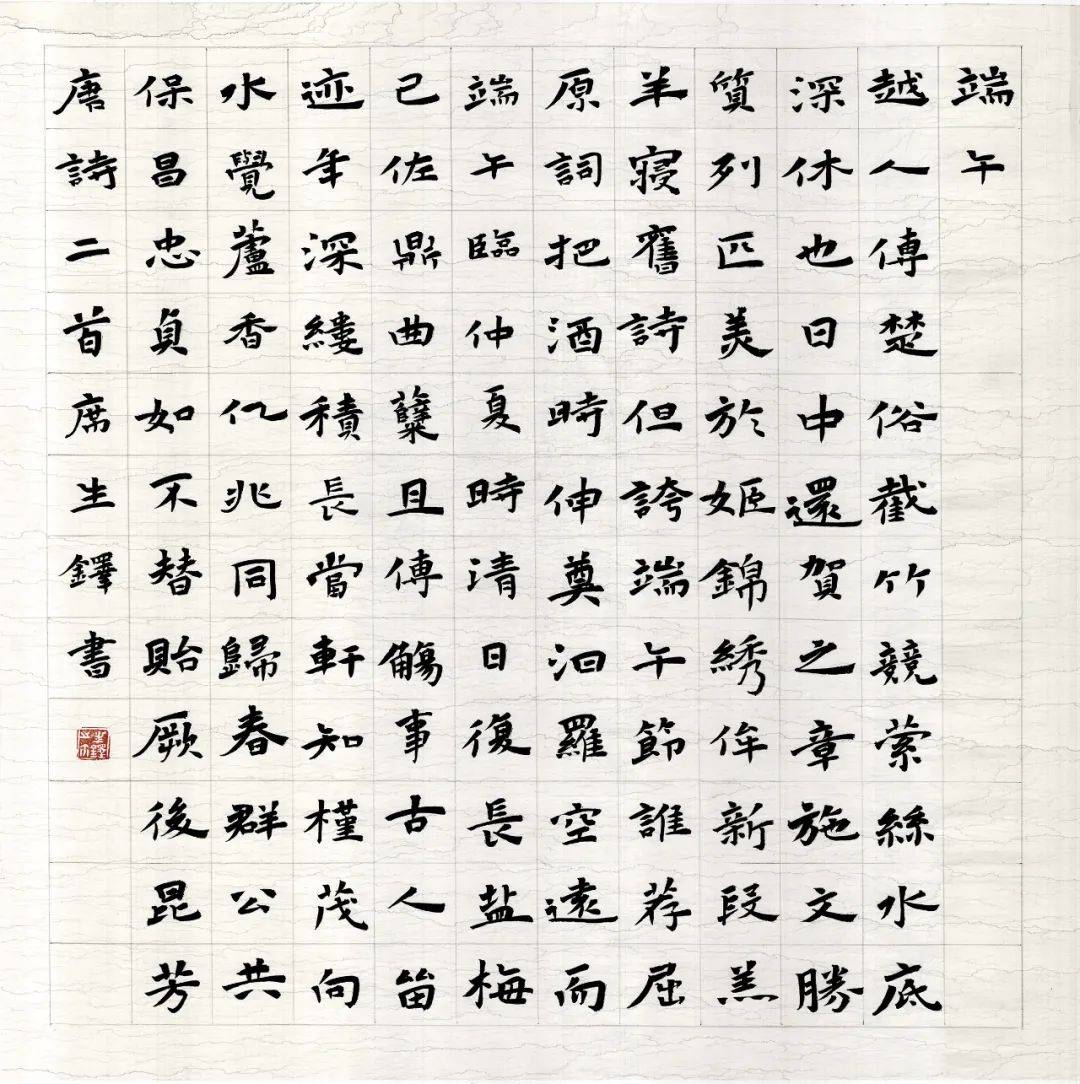 端午
越人傳楚俗截竹競縈絲水底
深休也日中還賀之章施文勝
質列匹美於姬錦綉侔新段羔
羊寝舊詩但誇端午節誰荐屈
原詞把酒時伸奠汨羅空遠而
端午臨仲夏時清日復長盐梅
已佐鼎曲糵且傳觴事古人留
迹年深縷積長當軒知槿茂向
水覺蘆香亿兆同歸春群公共
保昌忠貞如不替貽厥後昆芳
唐詩二首席生鐸書